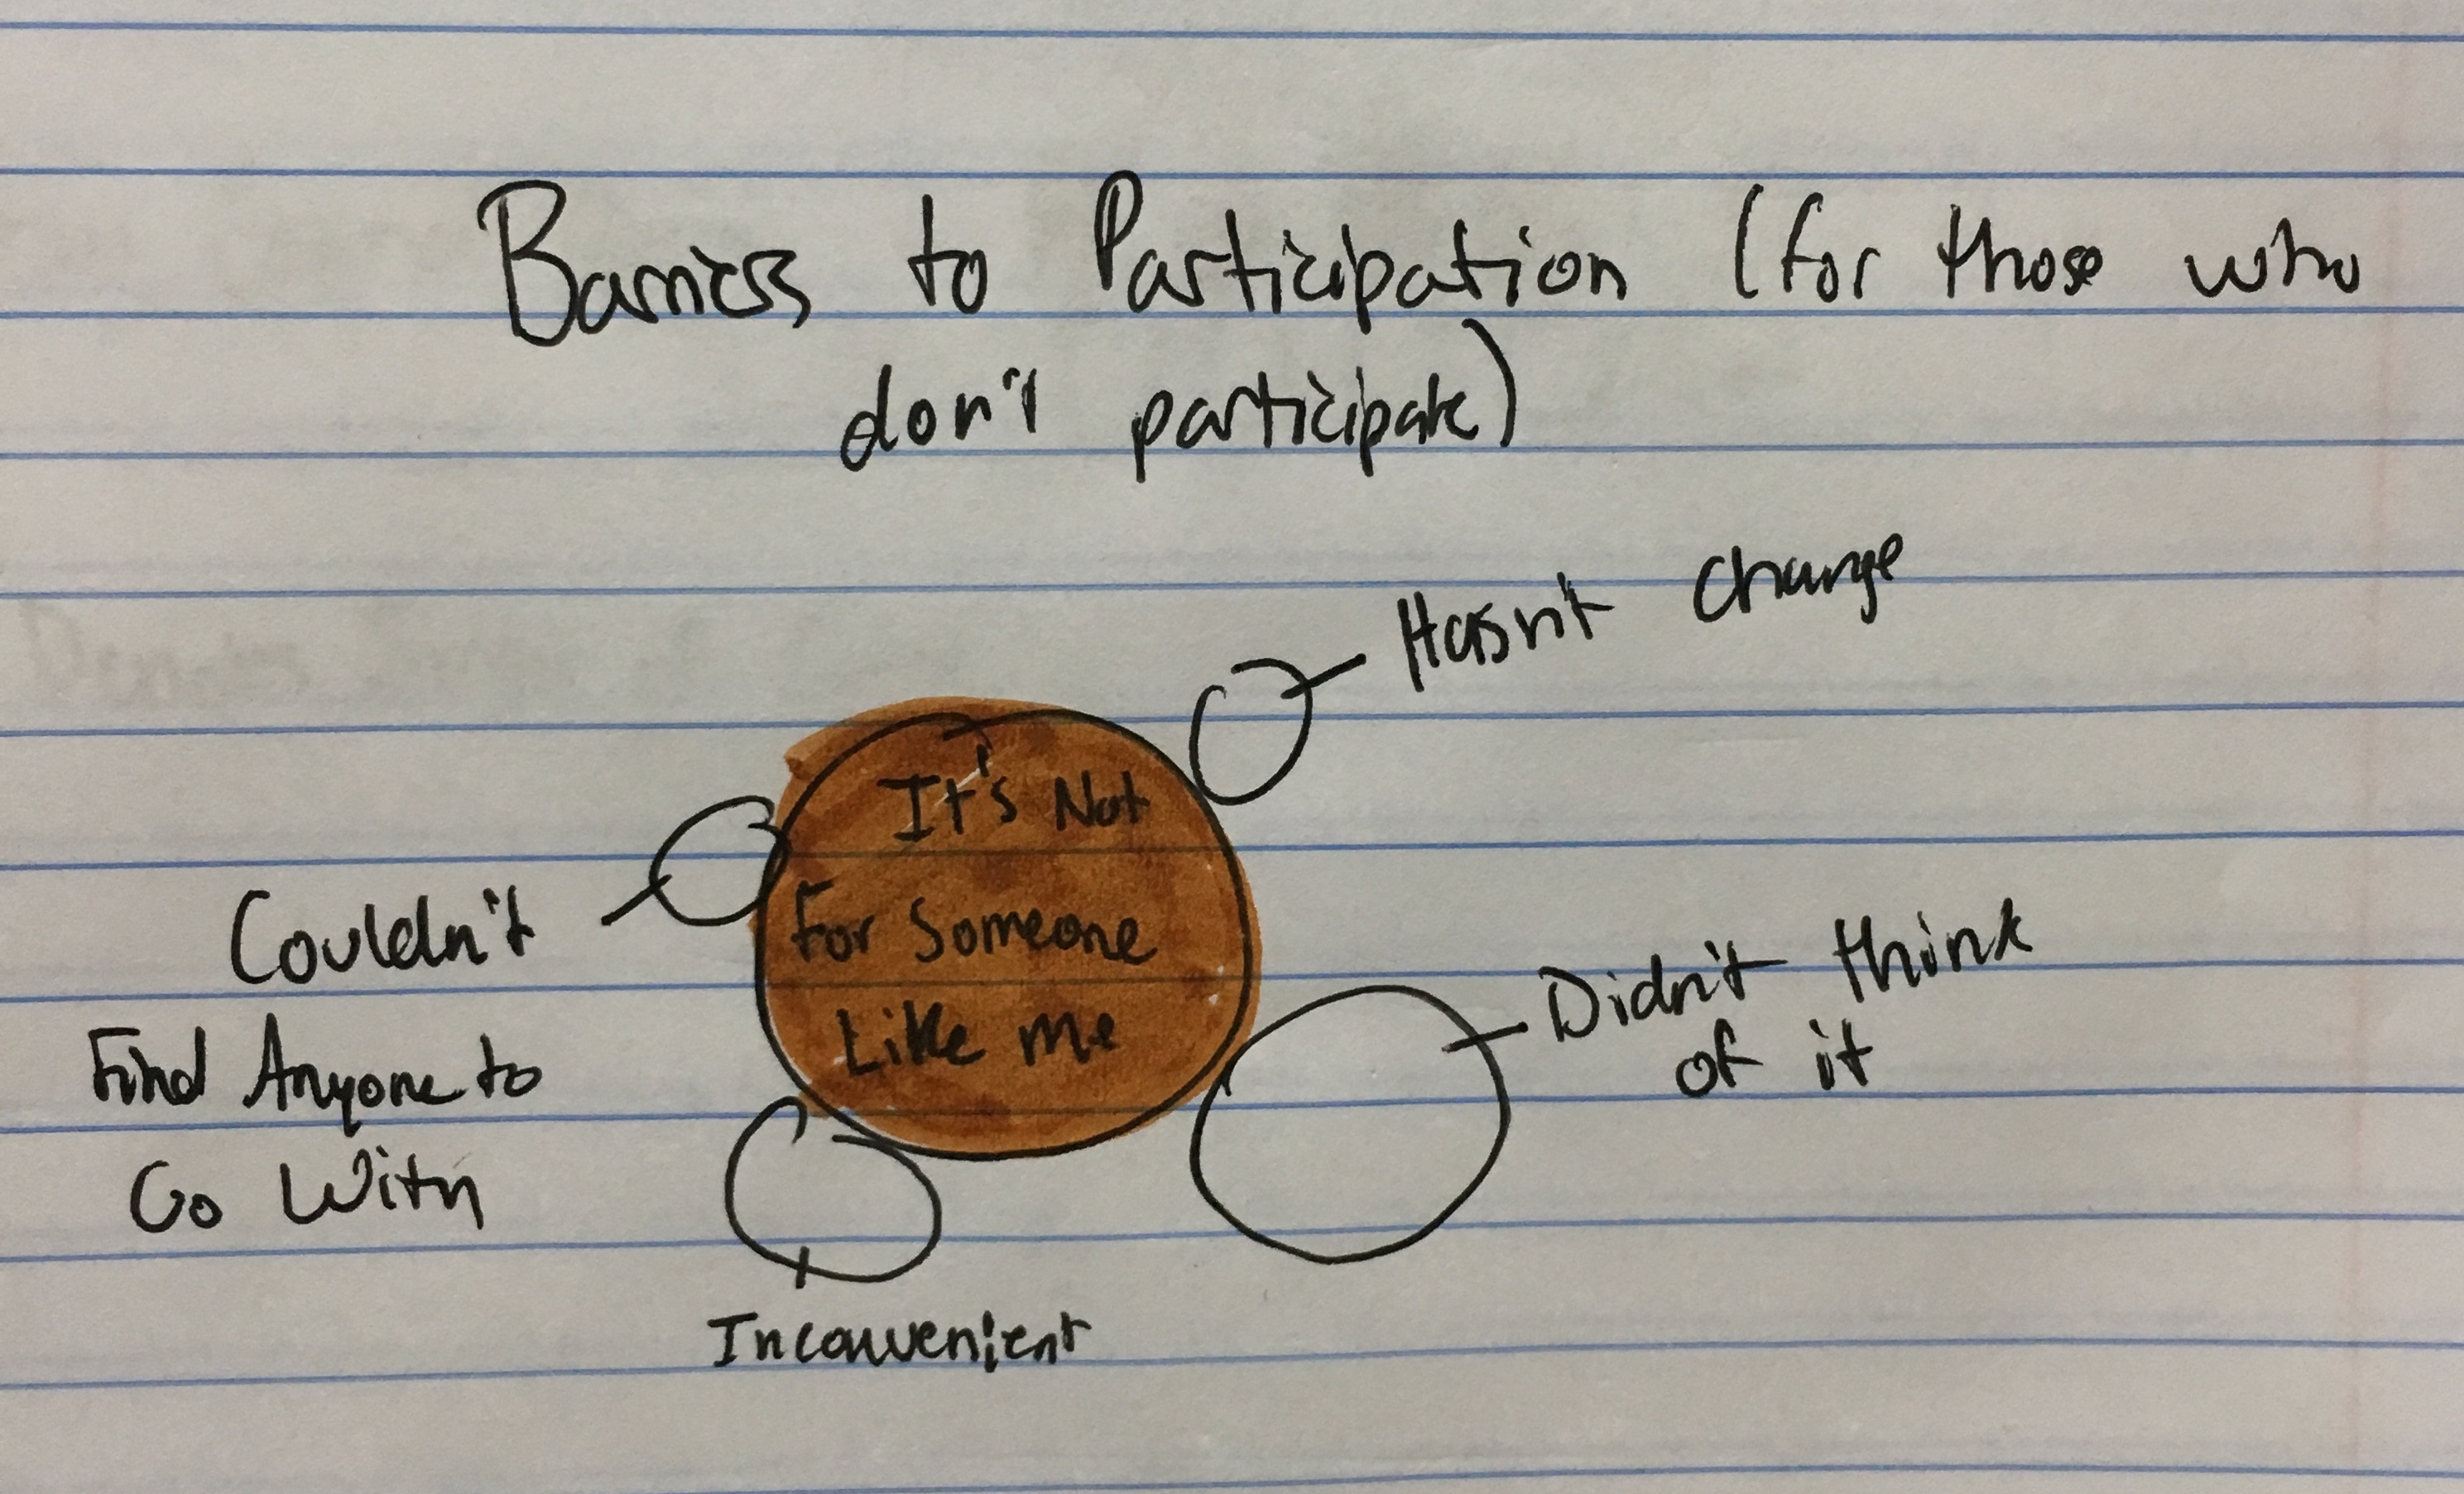 Barriers to Participation (for those who
don't participate)
Hasn't change
It's Not
For Someone
Like me
Couldn't
Find Anyone to
Go With
Didn't think
of it
Inconvenient